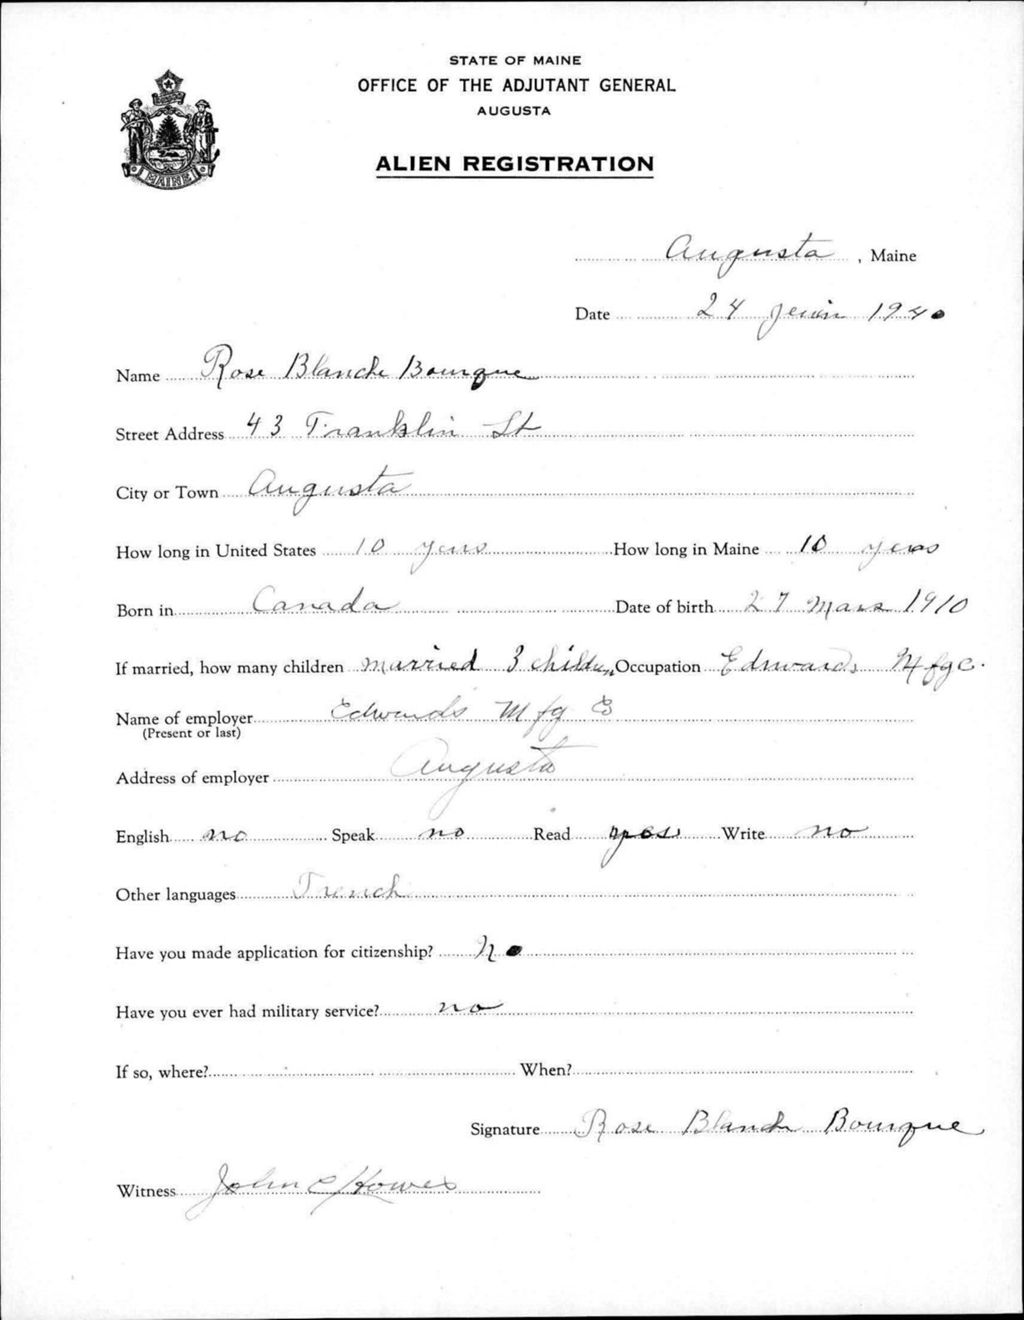 STATE OF MAINE
OFFICE OF THE ADJUTANT GENERAL
AUGUSTA
ALIEN REGISTRATION
MAINE
Augusta, Maine
Date 24 Jeuin 1940
Name Rose Blanche Bourque
Street Address 43 Franklin St
City or Town Augusta
How long in United States 10 years How long in Maine 10 years
Born in Canada Date of birth 27 Mars 1910
If married, how many children married 3 children Occupation Edwards Mfgc.
Name of employer Edwards Mfg Co
(Present or last)
Address of employer Augusta
English no Speak no Read yes Write no
Other languages French
Have you made application for citizenship? No
Have you ever had military service? no
If so, where? When?
Signature Rose Blanch Bourque
Witness John C Howes